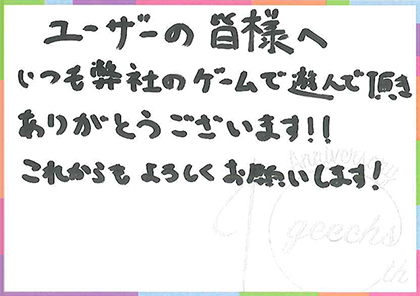 ユーザーの皆様へ
いつも弊社のゲームで遊んで頂き
ありがとうございます!!
これからもよろしくお願いします!
10th
Anniversary
geechs